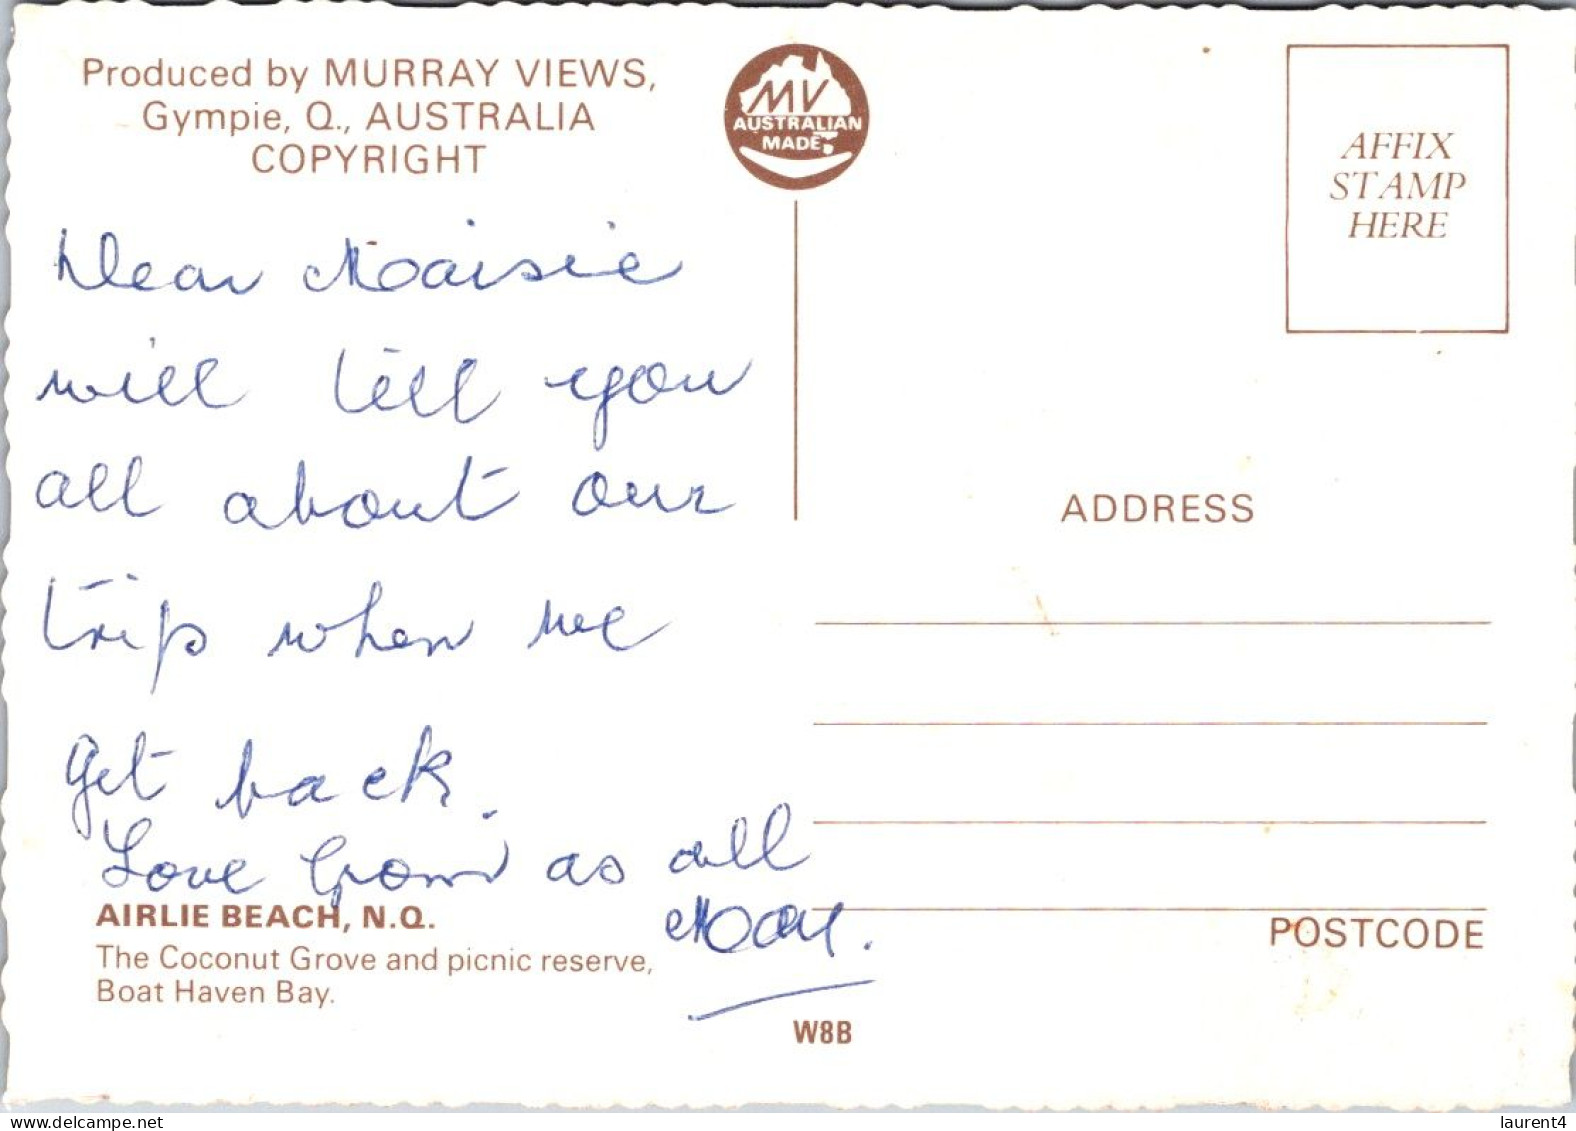 Produced by MURRAY VIEWS,
Gympie, Q., AUSTRALIA
COPYRIGHT
MV
AUSTRALIAN
MADE
AFFIX
STAMP
HERE
Dear Maisie
will tell you
all about our
trip when we
get back.
Love from as all
May.
AIRLIE BEACH, N.Q.
The Coconut Grove and picnic reserve,
Boat Haven Bay.
W8B
ADDRESS
POSTCODE
www.delcampe.net
laurent4